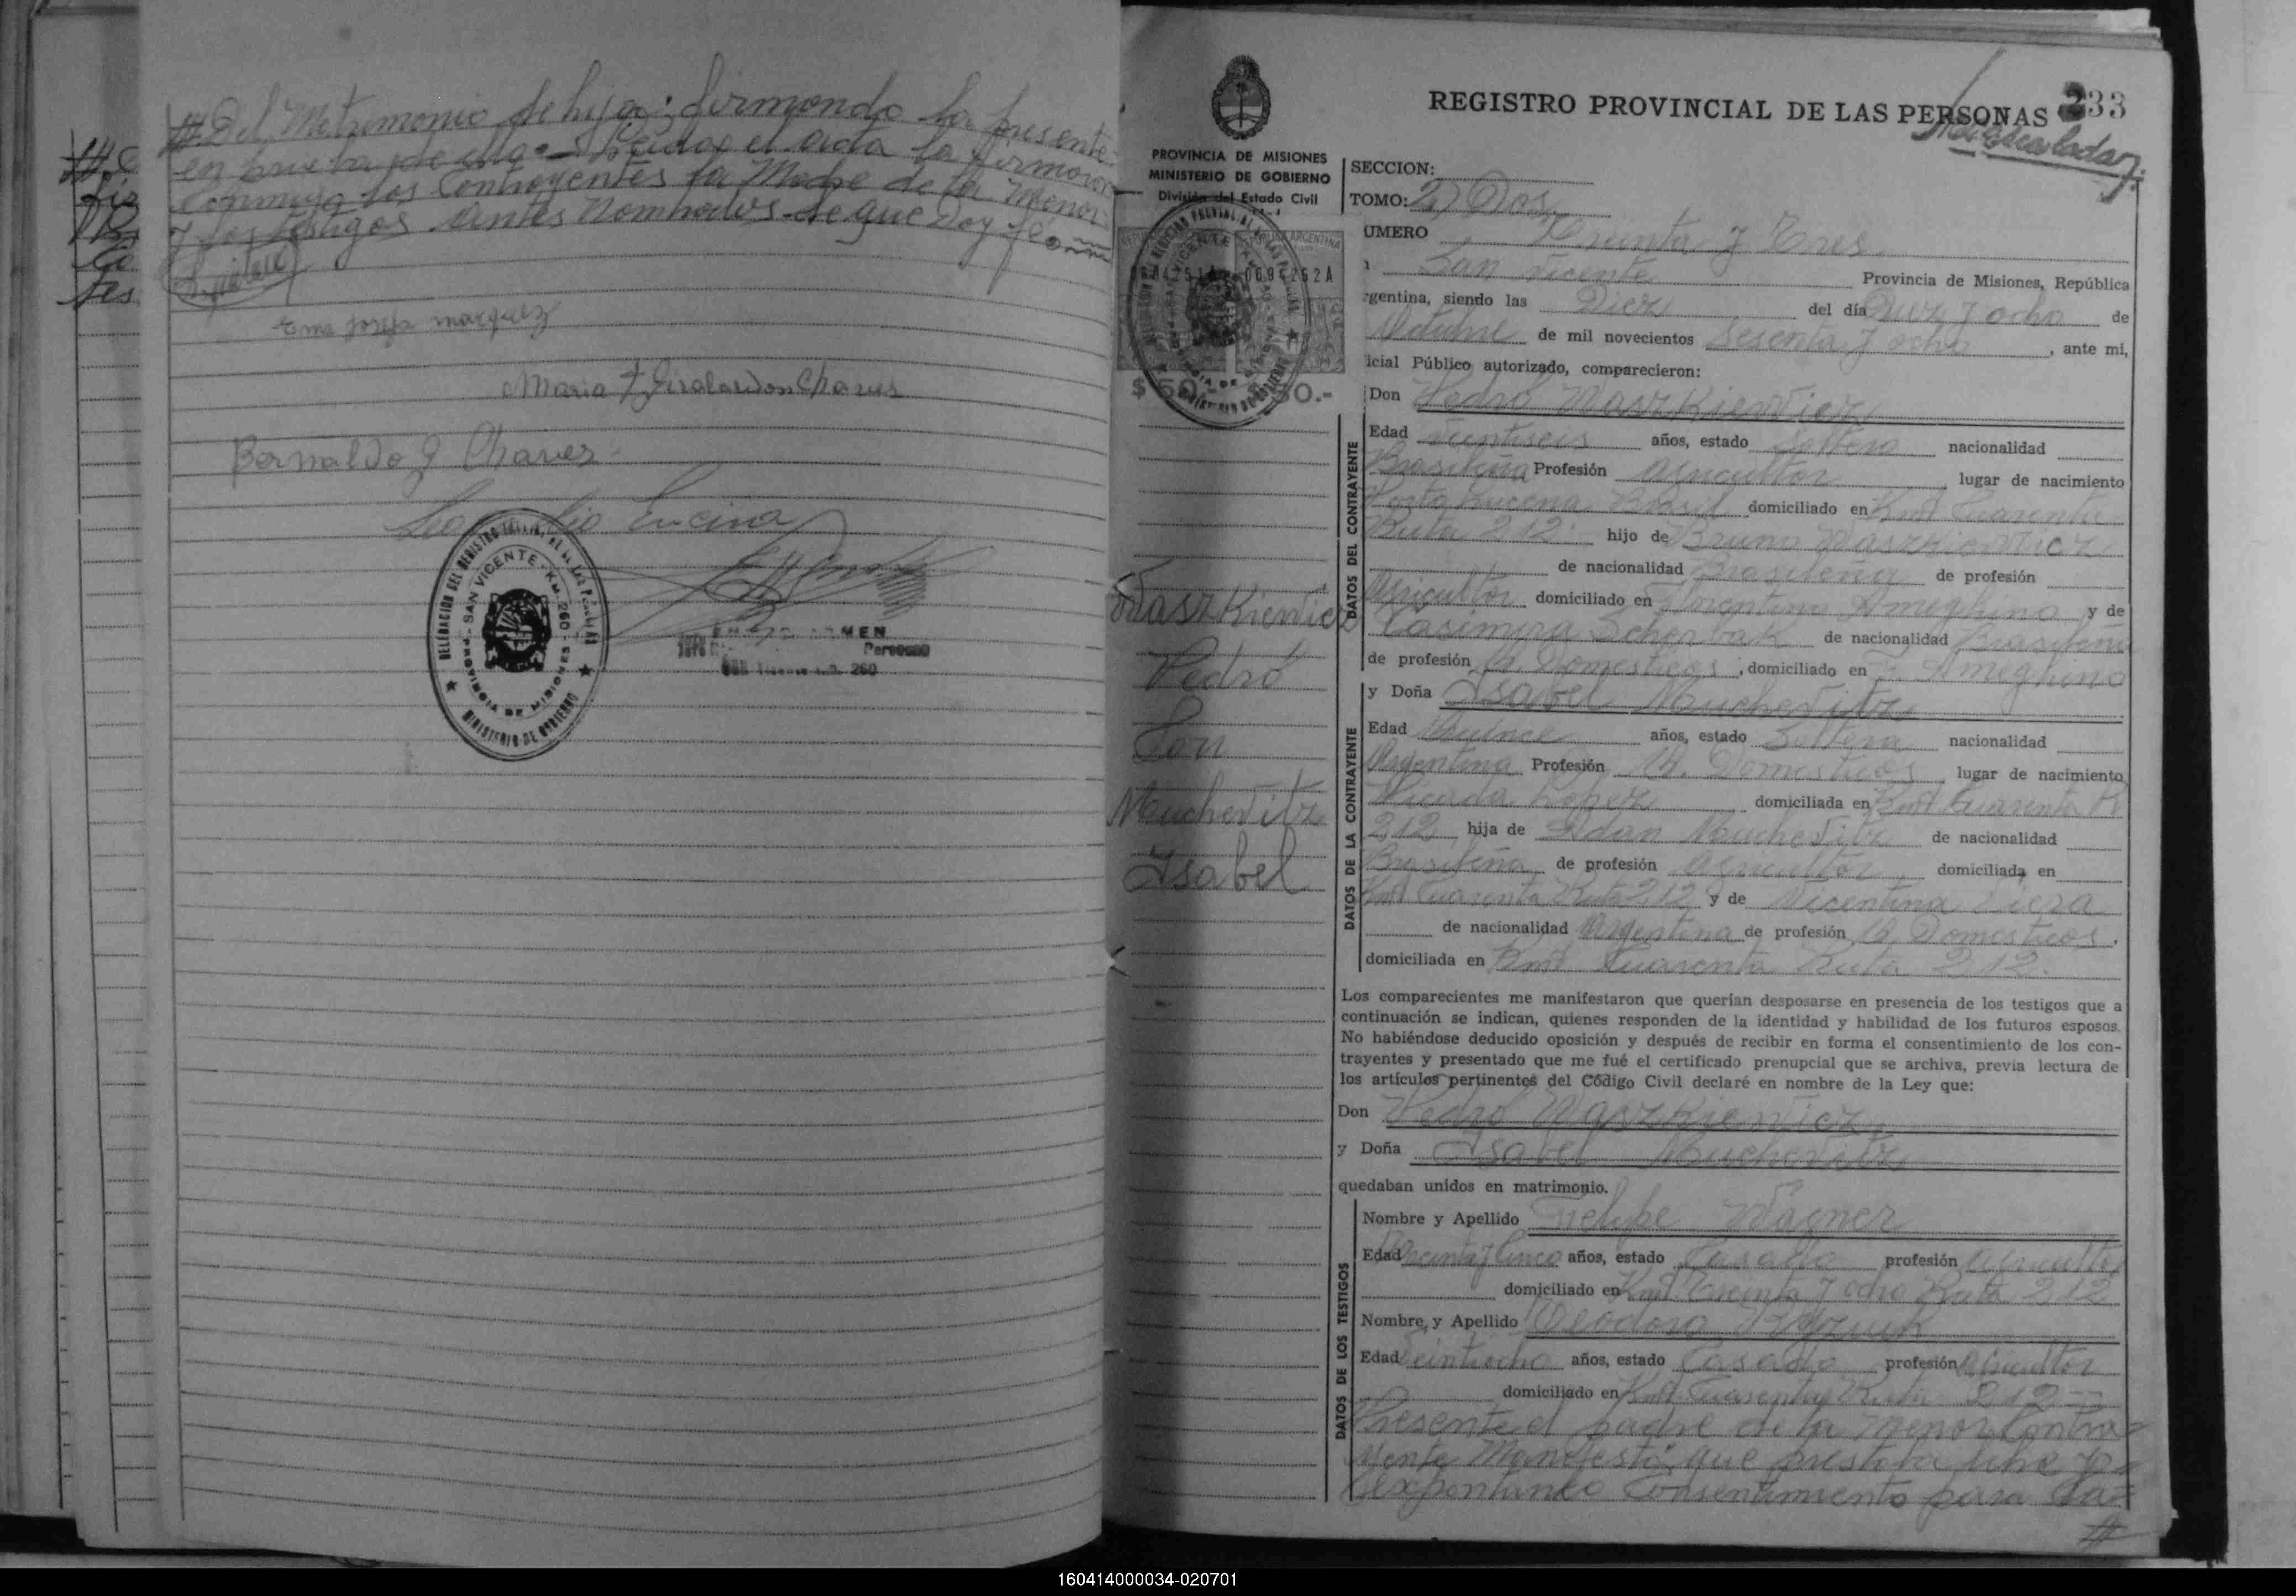 # Del Matrimonio de hija: firmando la presente
en prueba de ello. Leida el acta la firmaron
Conmigo los Contrayentes la Madre de la Menor
y los testigos antes Nombrados de que Doy fé
Ema Josefa marquez
Maria F Giralardon Chaves
Bernaldo J Chaves
Encina
DELEGACION DEL REGISTRO PROVINCIAL DE LAS PERSONAS
SAN VICENTE - KM. 260 -
PROVINCIA DE MISIONES
MINISTERIO DE GOBIERNO
REGISTRO PROVINCIAL DE LAS PERSONAS 233
PROVINCIA DE MISIONES
MINISTERIO DE GOBIERNO
División del Estado Civil
SECCION:
TOMO: 2) Dos
UMERO Treinta y Tres
San Vicente Provincia de Misiones, República
rgentina, siendo las Diez del día Diez y ocho de
Octubre de mil novecientos Sesenta y ocho, ante mi,
icial Público autorizado, comparecieron:
Don Pedro Waszkiewicz
DATOS DEL CONTRAYENTE
Edad Veintiseis años, estado Soltero nacionalidad
Brasileña Profesión agricultor lugar de nacimiento
Porto Lucena Brasil domiciliado en Kmt Cuarenta
Ruta 212 hijo de Bruno Waszkiewicz
de nacionalidad Brasileña de profesión
Agricultor domiciliado en Florentino Ameghino y de
Casimira Scherbak de nacionalidad Brasileña
de profesión Q. Domesticos, domiciliado en F. Ameghino
y Doña Isabel Muchevitz
DATOS DE LA CONTRAYENTE
Edad Quince años, estado Soltera nacionalidad
Argentina Profesión Q. Domesticos, lugar de nacimiento
Picada Lopez domiciliada en Kmt Cuarenta R
212 hija de Adan Muchevitz de nacionalidad
Brasileña de profesión agricultor domiciliada en
Kmt Cuarenta Ruta 212 y de Vicentina Viera
de nacionalidad Argentina de profesión Q. Domesticos,
domiciliada en Kmt Cuarenta Ruta 212.
Waszkiewicz
Pedro
Con
Muchevitz
Isabel
Los comparecientes me manifestaron que querían desposarse en presencia de los testigos que a
continuación se indican, quienes responden de la identidad y habilidad de los futuros esposos.
No habiéndose deducido oposición y después de recibir en forma el consentimiento de los con-
trayentes y presentado que me fué el certificado prenupcial que se archiva, previa lectura de
los artículos pertinentes del Código Civil declaré en nombre de la Ley que:
Don Pedro Waszkiewicz
y Doña Isabel Muchevitz
quedaban unidos en matrimonio.
DATOS DE LOS TESTIGOS
Nombre y Apellido Felipe Wagner
Edad Treinta y Cinco años, estado Casado profesión agricultor
domiciliado en Kmt Treinta y ocho Ruta 212
Nombre y Apellido Teodoro
Edad Veintiocho años, estado Casado profesión agricultor
domiciliado en Kmt Cuarenta Ruta 212
Presente el padre de la menor Contra=
yente Manifestó: que prestaba libre y
expontaneo Consentimiento para la
160414000034-020701